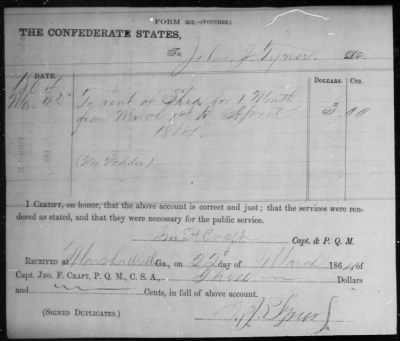 FORM 202.—(VOUCHER.)
THE CONFEDERATE STATES,
To John J. Tyner Dr.
DATE. DOLLARS. CTS.
1864
Mar 22 To amt of for 1 Month 3 00
from March 1st to April
1864.
(For Fodder)
I CERTIFY, on honor, that the above account is correct and just; that the services were ren-
dered as stated, and that they were necessary for the public service.
Jno F Craft Capt. & P. Q. M.
RECEIVED AT Ga., on 22d of March 1864 of
Capt. JNO. F. CRAFT, P. Q. M., C. S. A., Three Dollars
and Cents, in full of above account.
(SIGNED DUPLICATES.)